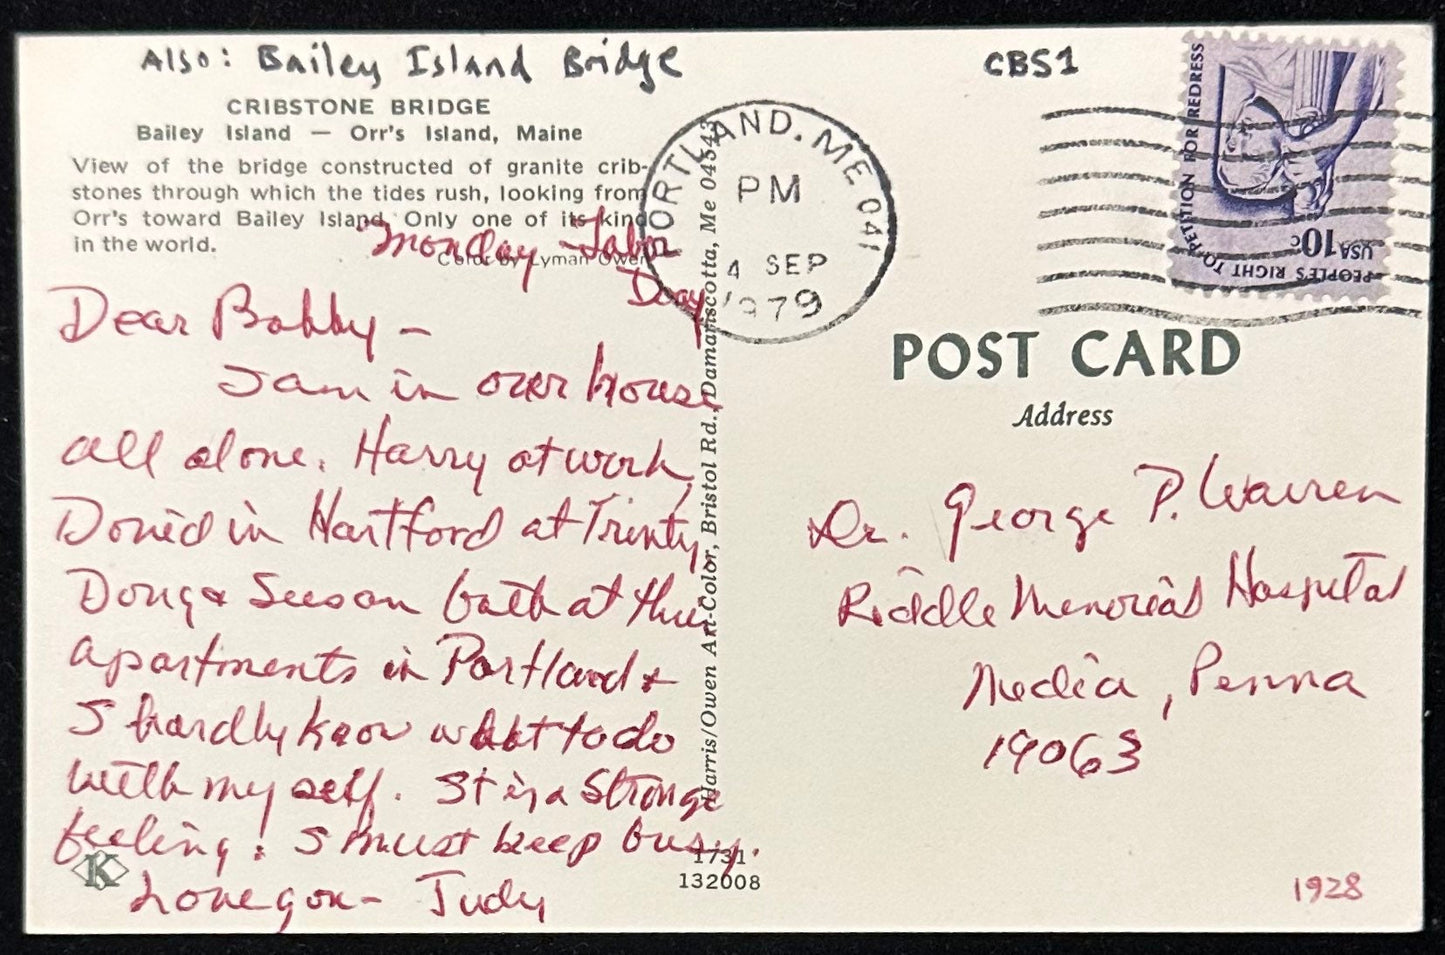 Also: Bailey Island Bridge
CBS1
CRIBSTONE BRIDGE
Bailey Island — Orr's Island, Maine
View of the bridge constructed of granite crib-
stones through which the tides rush, looking from
Orr's toward Bailey Island. Only one of its kind
in the world.
Color by Lyman Owen
Monday Labor
Day
Dear Bobby –
I am in over house
all alone. Harry at work,
David in Hartford at Trinty,
Doug & Susan both at their
apartments in Portland &
I hardly know what to do
with my self. It is a strange
feeling! I must keep busy.
Love you – Judy
K
1731
132008
Harris/Owen Art-Color, Bristol Rd., Damariscotta, Me 04543
PORTLAND, ME 041
PM
4 SEP
1979
PEOPLE'S RIGHT TO PETITION FOR REDRESS
USA 10c
POST CARD
Address
Dr. George P. Warren
Riddle Memorial Hospital
Media, Penna
19063
1928